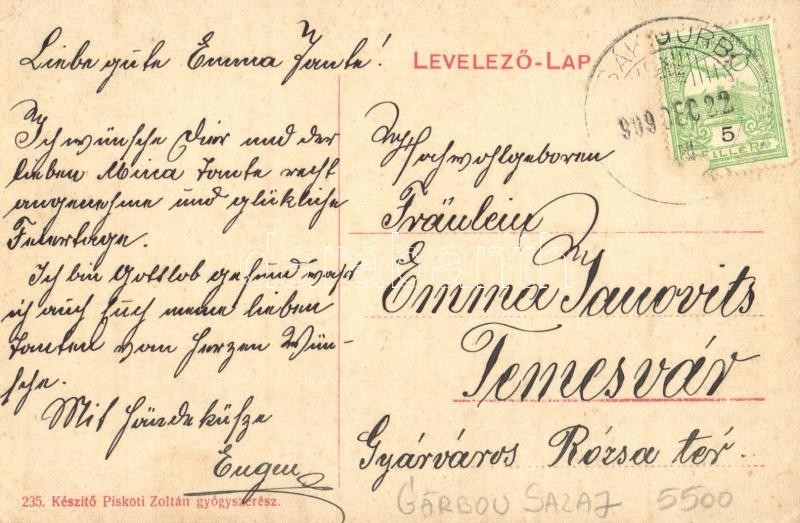 Liebe gute Emma Tante!
Ich wünsche Dier und der
lieben Mina Tante recht
angenehme und glükliche
Feiertage.
Ich bin Gottlob gesund was
ich auch Euch meine lieben
Tanten vom Herzen Wün-
sche.
Mit Händeküsze
Eugen
235. Készitő Piskoti Zoltán gyógyszerész.
LEVELEZŐ-LAP
GORBÓ
909 DEC 22
5
FILLÉR
Hochwohlgeboren
Fräulein
Emma Janovits
Temesvár
Gyárváros Rózsa tér.
GÂRBOU SALAJ 5500
darabanth